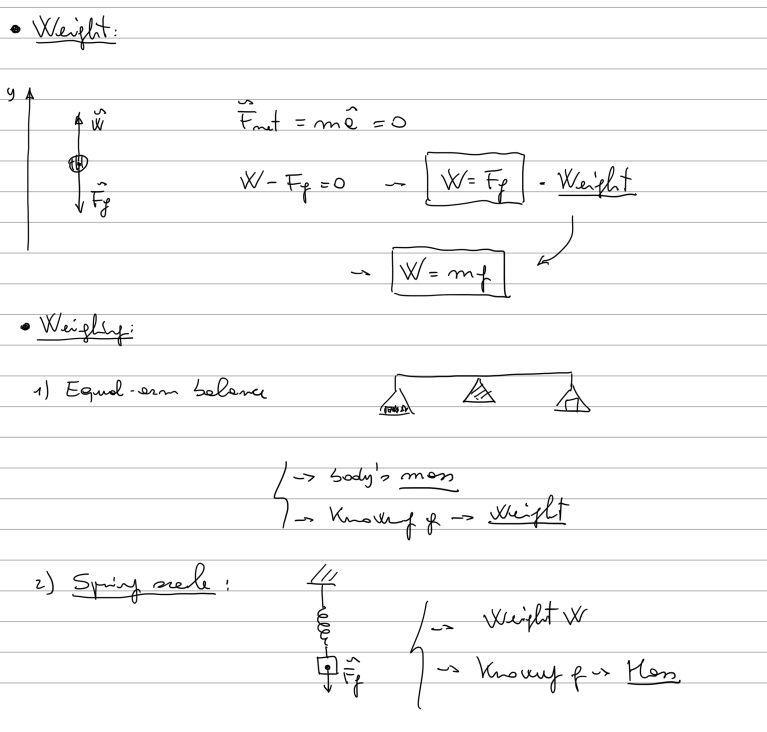 • Weight:
y
W
F_net = ma = 0
W - Fg = 0 → W = Fg - Weight
Fg
→ W = mg
• Weighing:
1) Equal-arm balance
→ body's mass
→ Knowing g → Weight
2) Spring scale:
→ Weight W
Fg
→ Knowing g → Mass